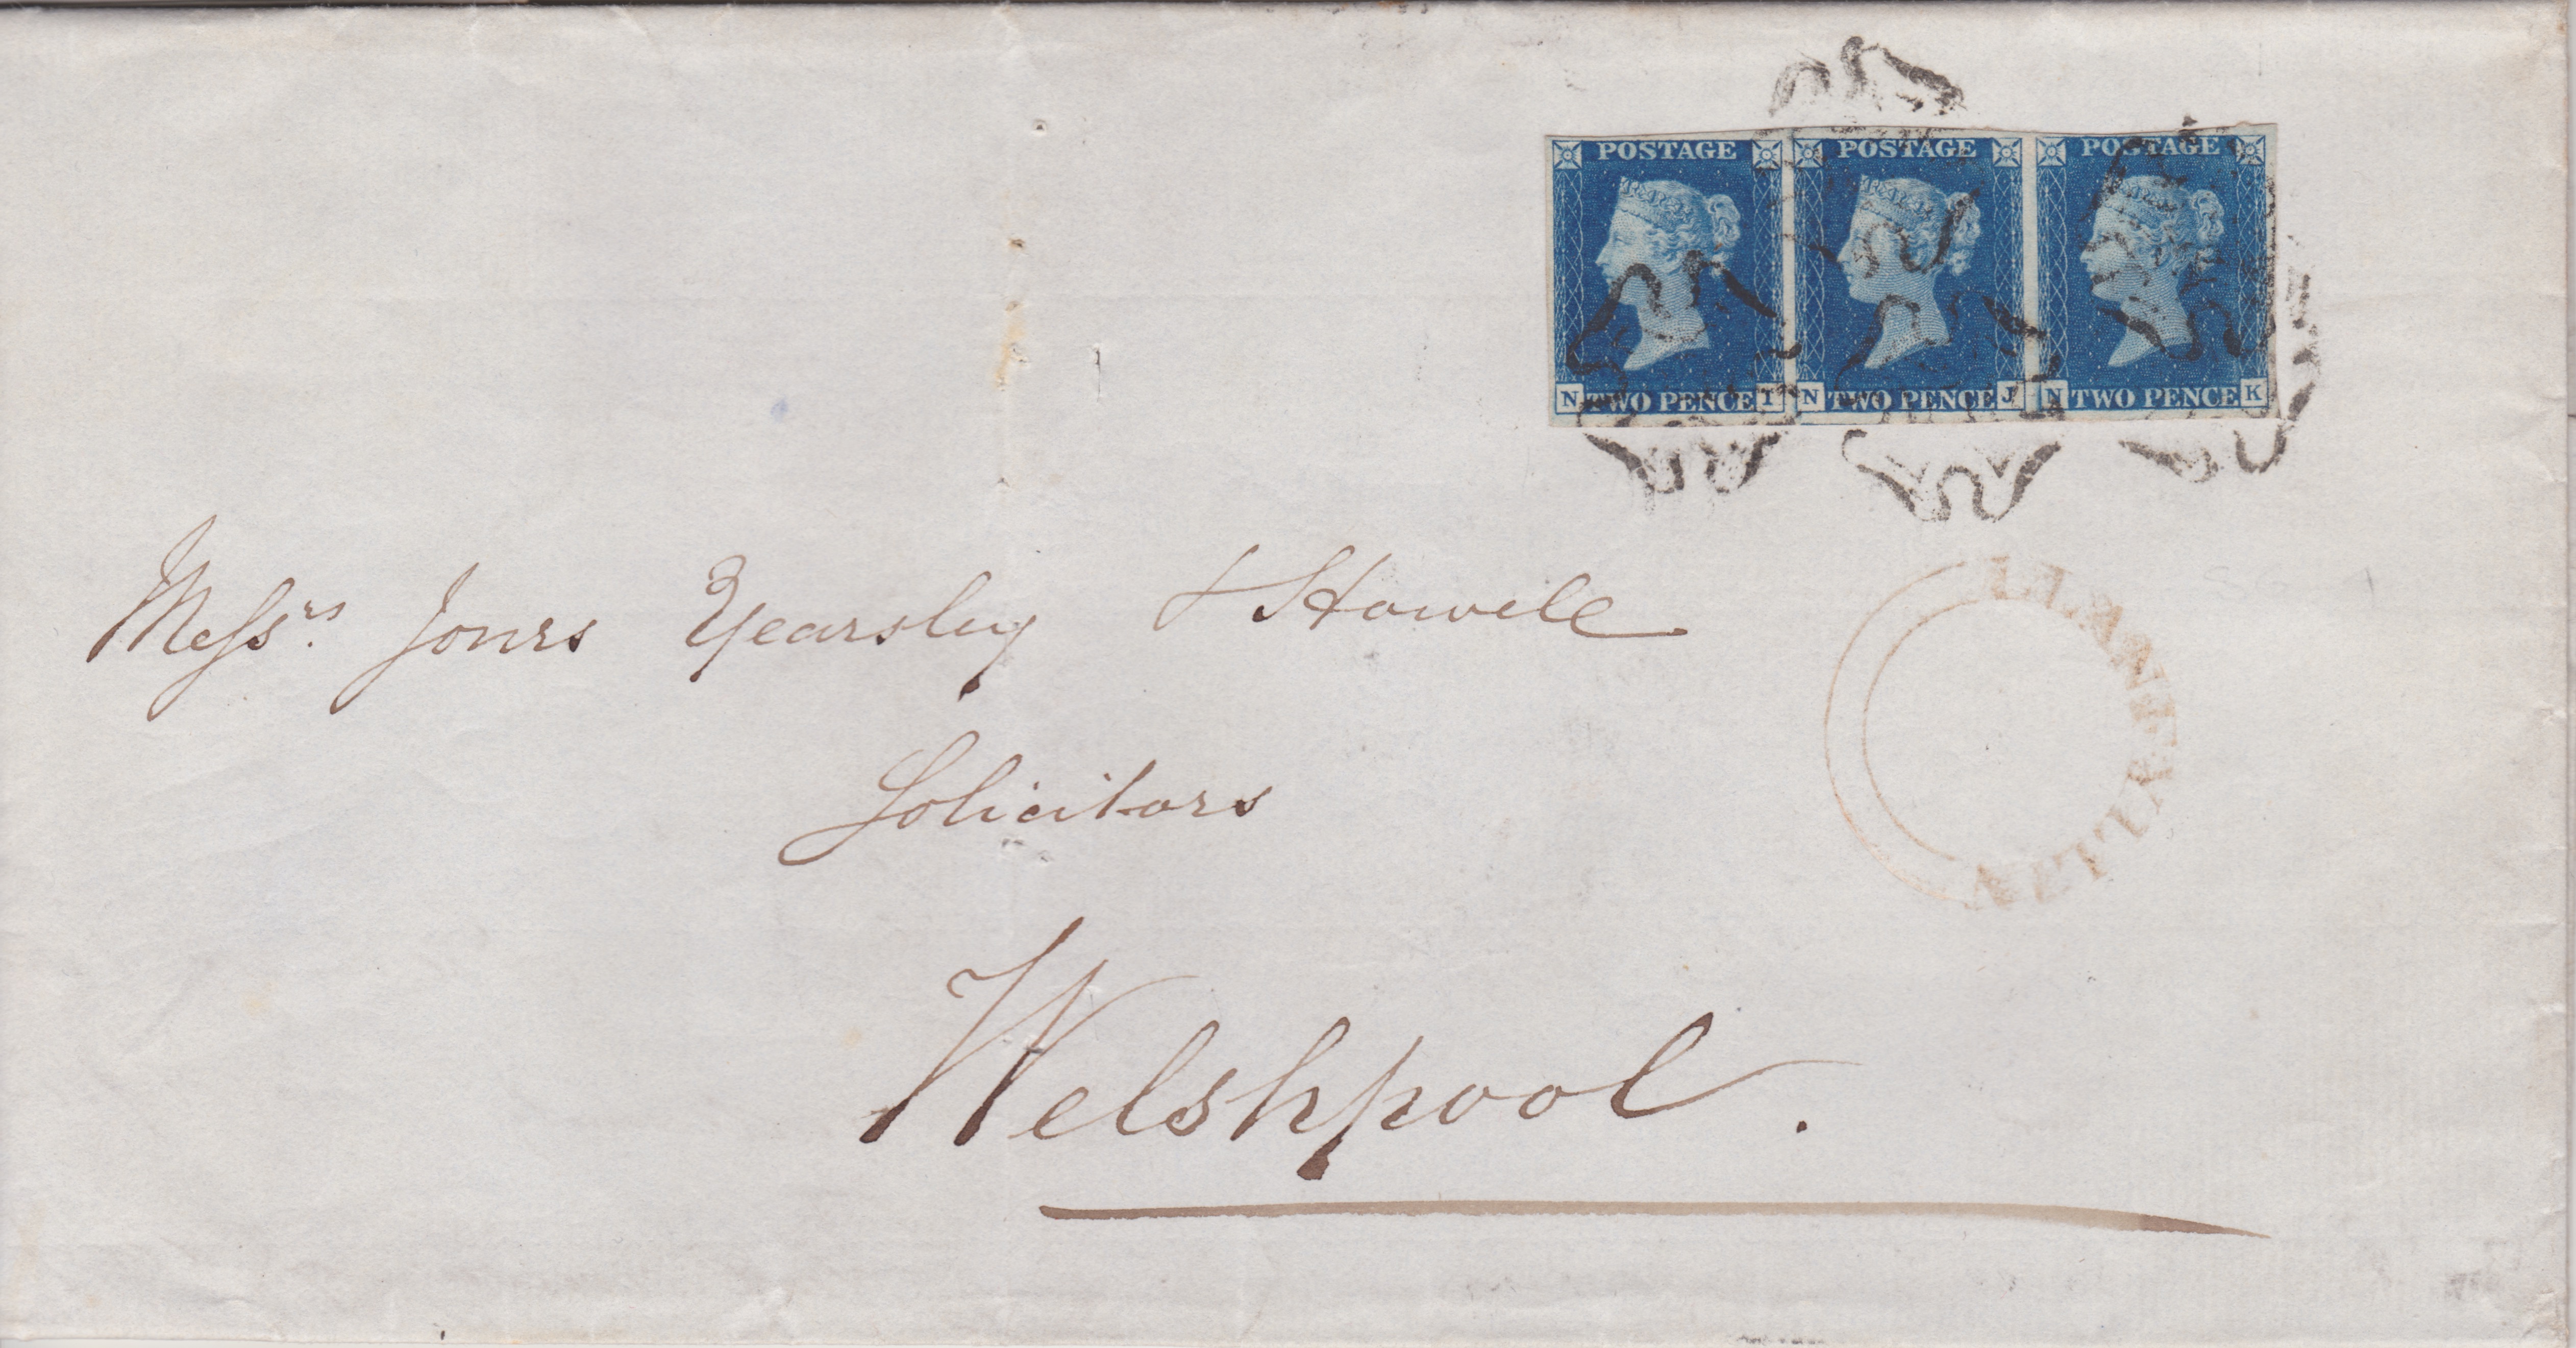 POSTAGE POSTAGE POSTAGE
N TWO PENCE I N TWO PENCE J N TWO PENCE K
Messrs. Jones Yearsley & Howell
LLANFYLLIN
Solicitors
Welshpool.